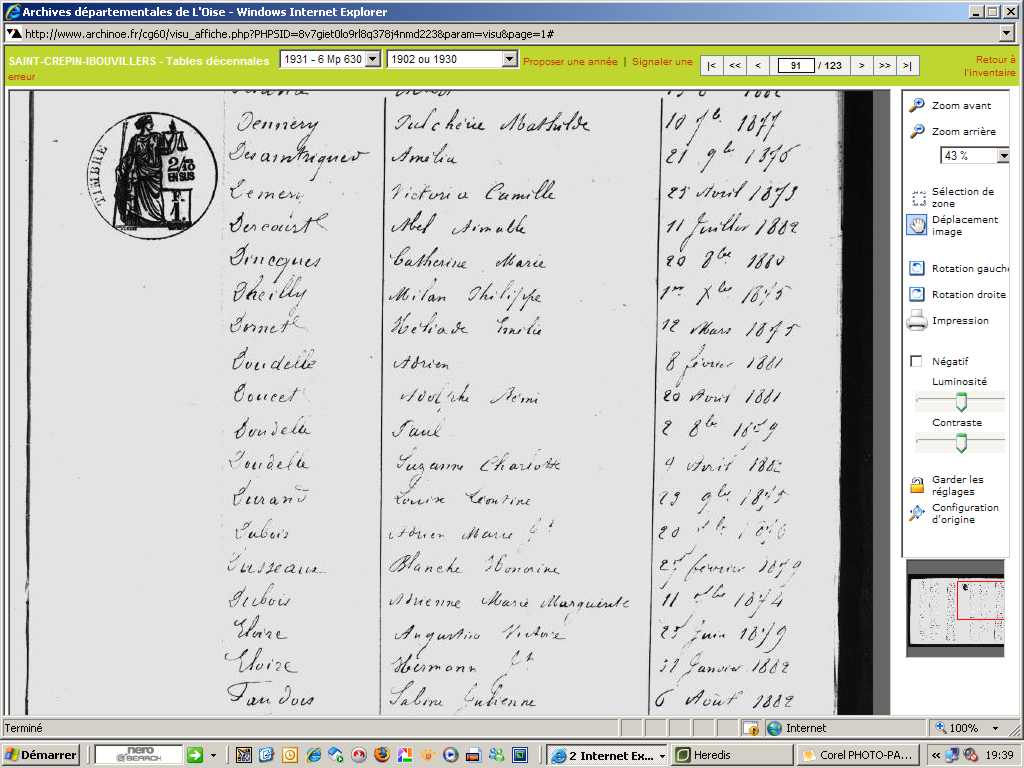 Archives départementales de L'Oise - Windows Internet Explorer
http://www.archinoe.fr/cg60/visu_affiche.php?PHPSID=8v7giet0lo9rl8q378j4nmd223&param=visu&page=1#
SAINT-CREPIN-IBOUVILLERS - Tables décennales 1931 - 6 Mp 630 1902 ou 1930 Proposer une année | Signaler une erreur
|< << < 91 / 123 > >> >|
Retour à l'inventaire
TIMBRE
2/10
EN SUS
F.
1.
Dennery Pulchérie Mathilde 10 7bre 1877
Amélia 21 9bre 1876
Demery Victoria Camille 25 Avril 1873
Dercourt Abel Aimable 11 Juillet 1882
Dincques Catherine Marie 20 8bre 1880
Dheilly Milan Philippe 1er Xbre 1875
Dornet Héliade Emélie 12 Mars 1875
Doudelle Adrien 8 février 1881
Doucet Adolphe Rémi 20 Avril 1881
Doudelle Paul 2 8bre 1879
Doudelle Suzanne Charlotte 9 Avril 1882
Durand Louise Léontine 23 9bre 1875
Dubois Adrien Marie Jh
Dusseaux Blanche Honorine 25 février 1879
Dubois Adrienne Marie Marguerite 11 1874
Eloire Augustin Victoire 25 Juin 1879
Eloire Hermann Jh 31 Janvier 1882
Faudois Sabine Julienne 6 Août 1882
Zoom avant
Zoom arrière
43 %
Sélection de zone
Déplacement image
Rotation gauche
Rotation droite
Impression
Négatif
Luminosité
Contraste
Garder les réglages
Configuration d'origine
Terminé Internet 100%
Démarrer nero SEARCH 2 Internet Ex... Heredis Corel PHOTO-PA... 19:39